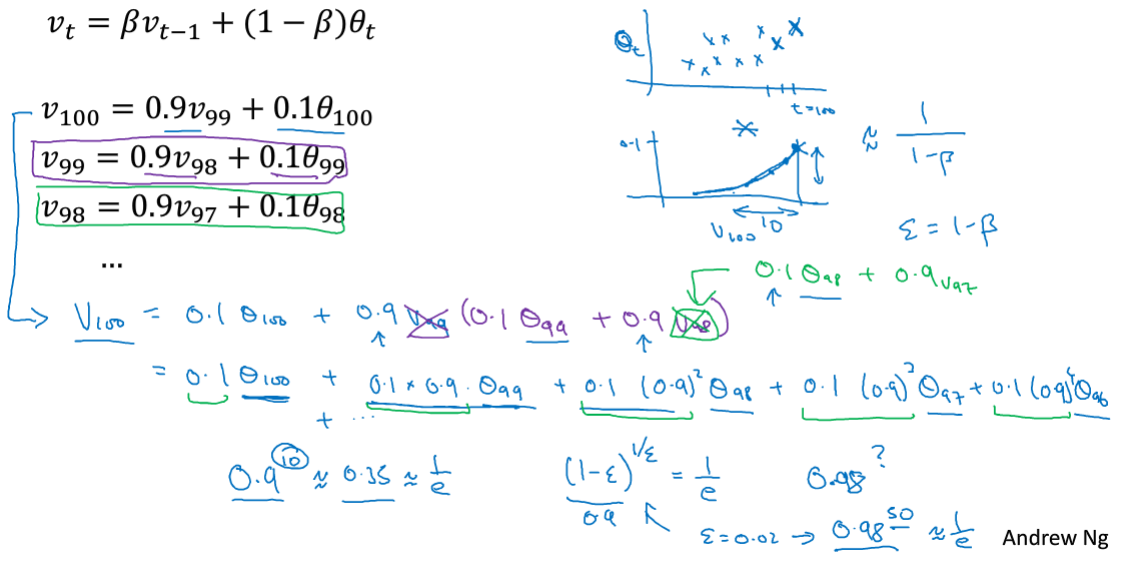 v_t = βv_{t−1} + (1 − β)θ_t
v_100 = 0.9v_99 + 0.1θ_100
v_99 = 0.9v_98 + 0.1θ_99
v_98 = 0.9v_97 + 0.1θ_98
...
θ_t
t=100
0.1
10
V_100
≈ 1/(1-β)
ε = 1-β
0.1 θ_98 + 0.9 V_97
V_100 = 0.1 θ_100 + 0.9 V_99 (0.1 θ_99 + 0.9 V_98)
= 0.1 θ_100 + 0.1 × 0.9 · θ_99 + 0.1 (0.9)^2 θ_98 + 0.1 (0.9)^3 θ_97 + 0.1 (0.9)^4 θ_96
+ ...
0.9^10 ≈ 0.35 ≈ 1/e
(1-ε)^{1/ε} = 1/e
0.9
0.98^?
ε = 0.02 → 0.98^50 ≈ 1/e
Andrew Ng